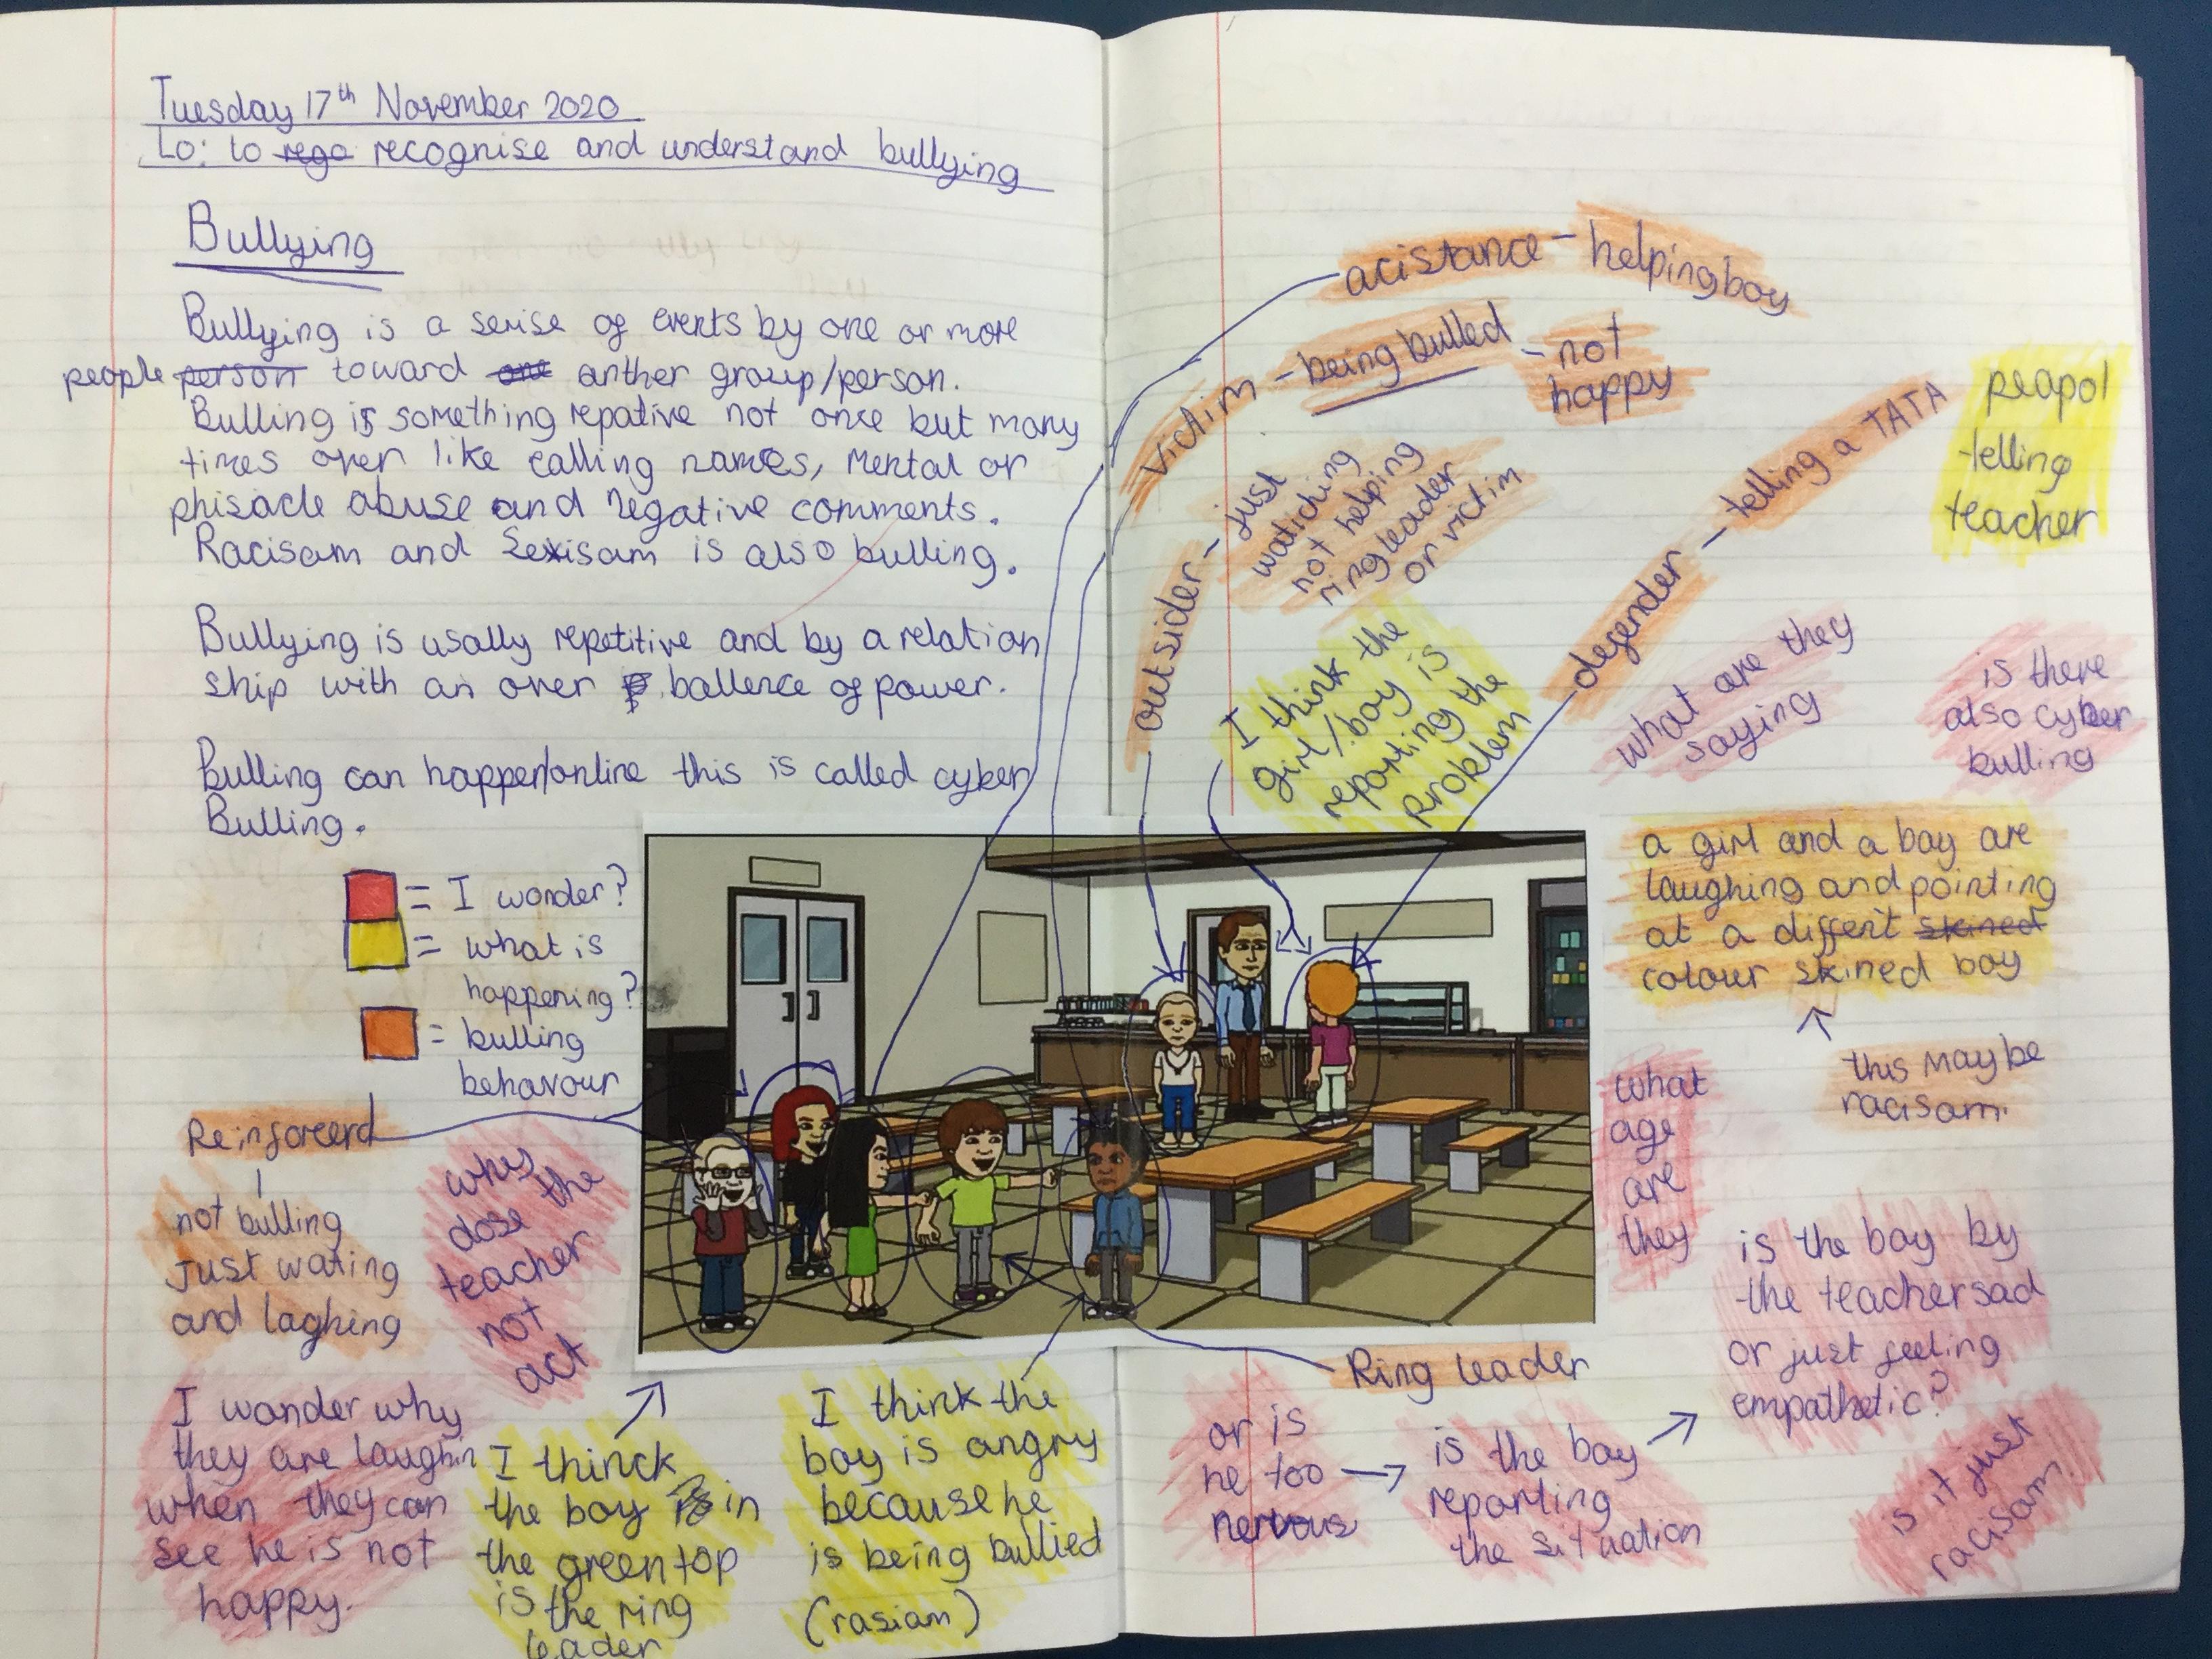 Tuesday 17th November 2020
Lo: to rego recognise and understand bullying
Bullying
Bullying is a serise of events by one or more
people person toward one anther group/person.
Bulling is something repative not once but many
times over like calling names, mental or
phisacle abuse and negative comments.
Racisam and Sexisam is also bulling.
Bullying is usally repetitive and by a relation
ship with an over ballence of power.
Bulling can happen/online this is called cyber
Bulling.
= I wonder?
= what is
happening?
= bulling
behavour
Reinforcerd
not bulling
Just wating
and laghing
whey
dose the
teacher
not
act
I wonder why
they are laughin
when they can
see he is not
happy.
I thinck
the boy in
the green top
is the ring
leader
I think the
boy is angry
because he
is being bullied
(rasiam)
acistance - helping boy
victim - being bulled - not
happy
outsider - just
watiching
not helping
ringleader
or victim
defender - telling a TATA
peapol
telling
teacher
I think the
girl/boy is
reporting the
problem
what are they
saying
is there
also cyber
bulling
a girl and a boy are
laughing and pointing
at a differit skined
colour skined boy
this may be
racisam.
what
age
are
they
is the boy by
the teacher sad
or just feeling
empathetic?
Ring leader
or is
he too
nervous
is the boy
reporting
the situation
is it just
racisam.